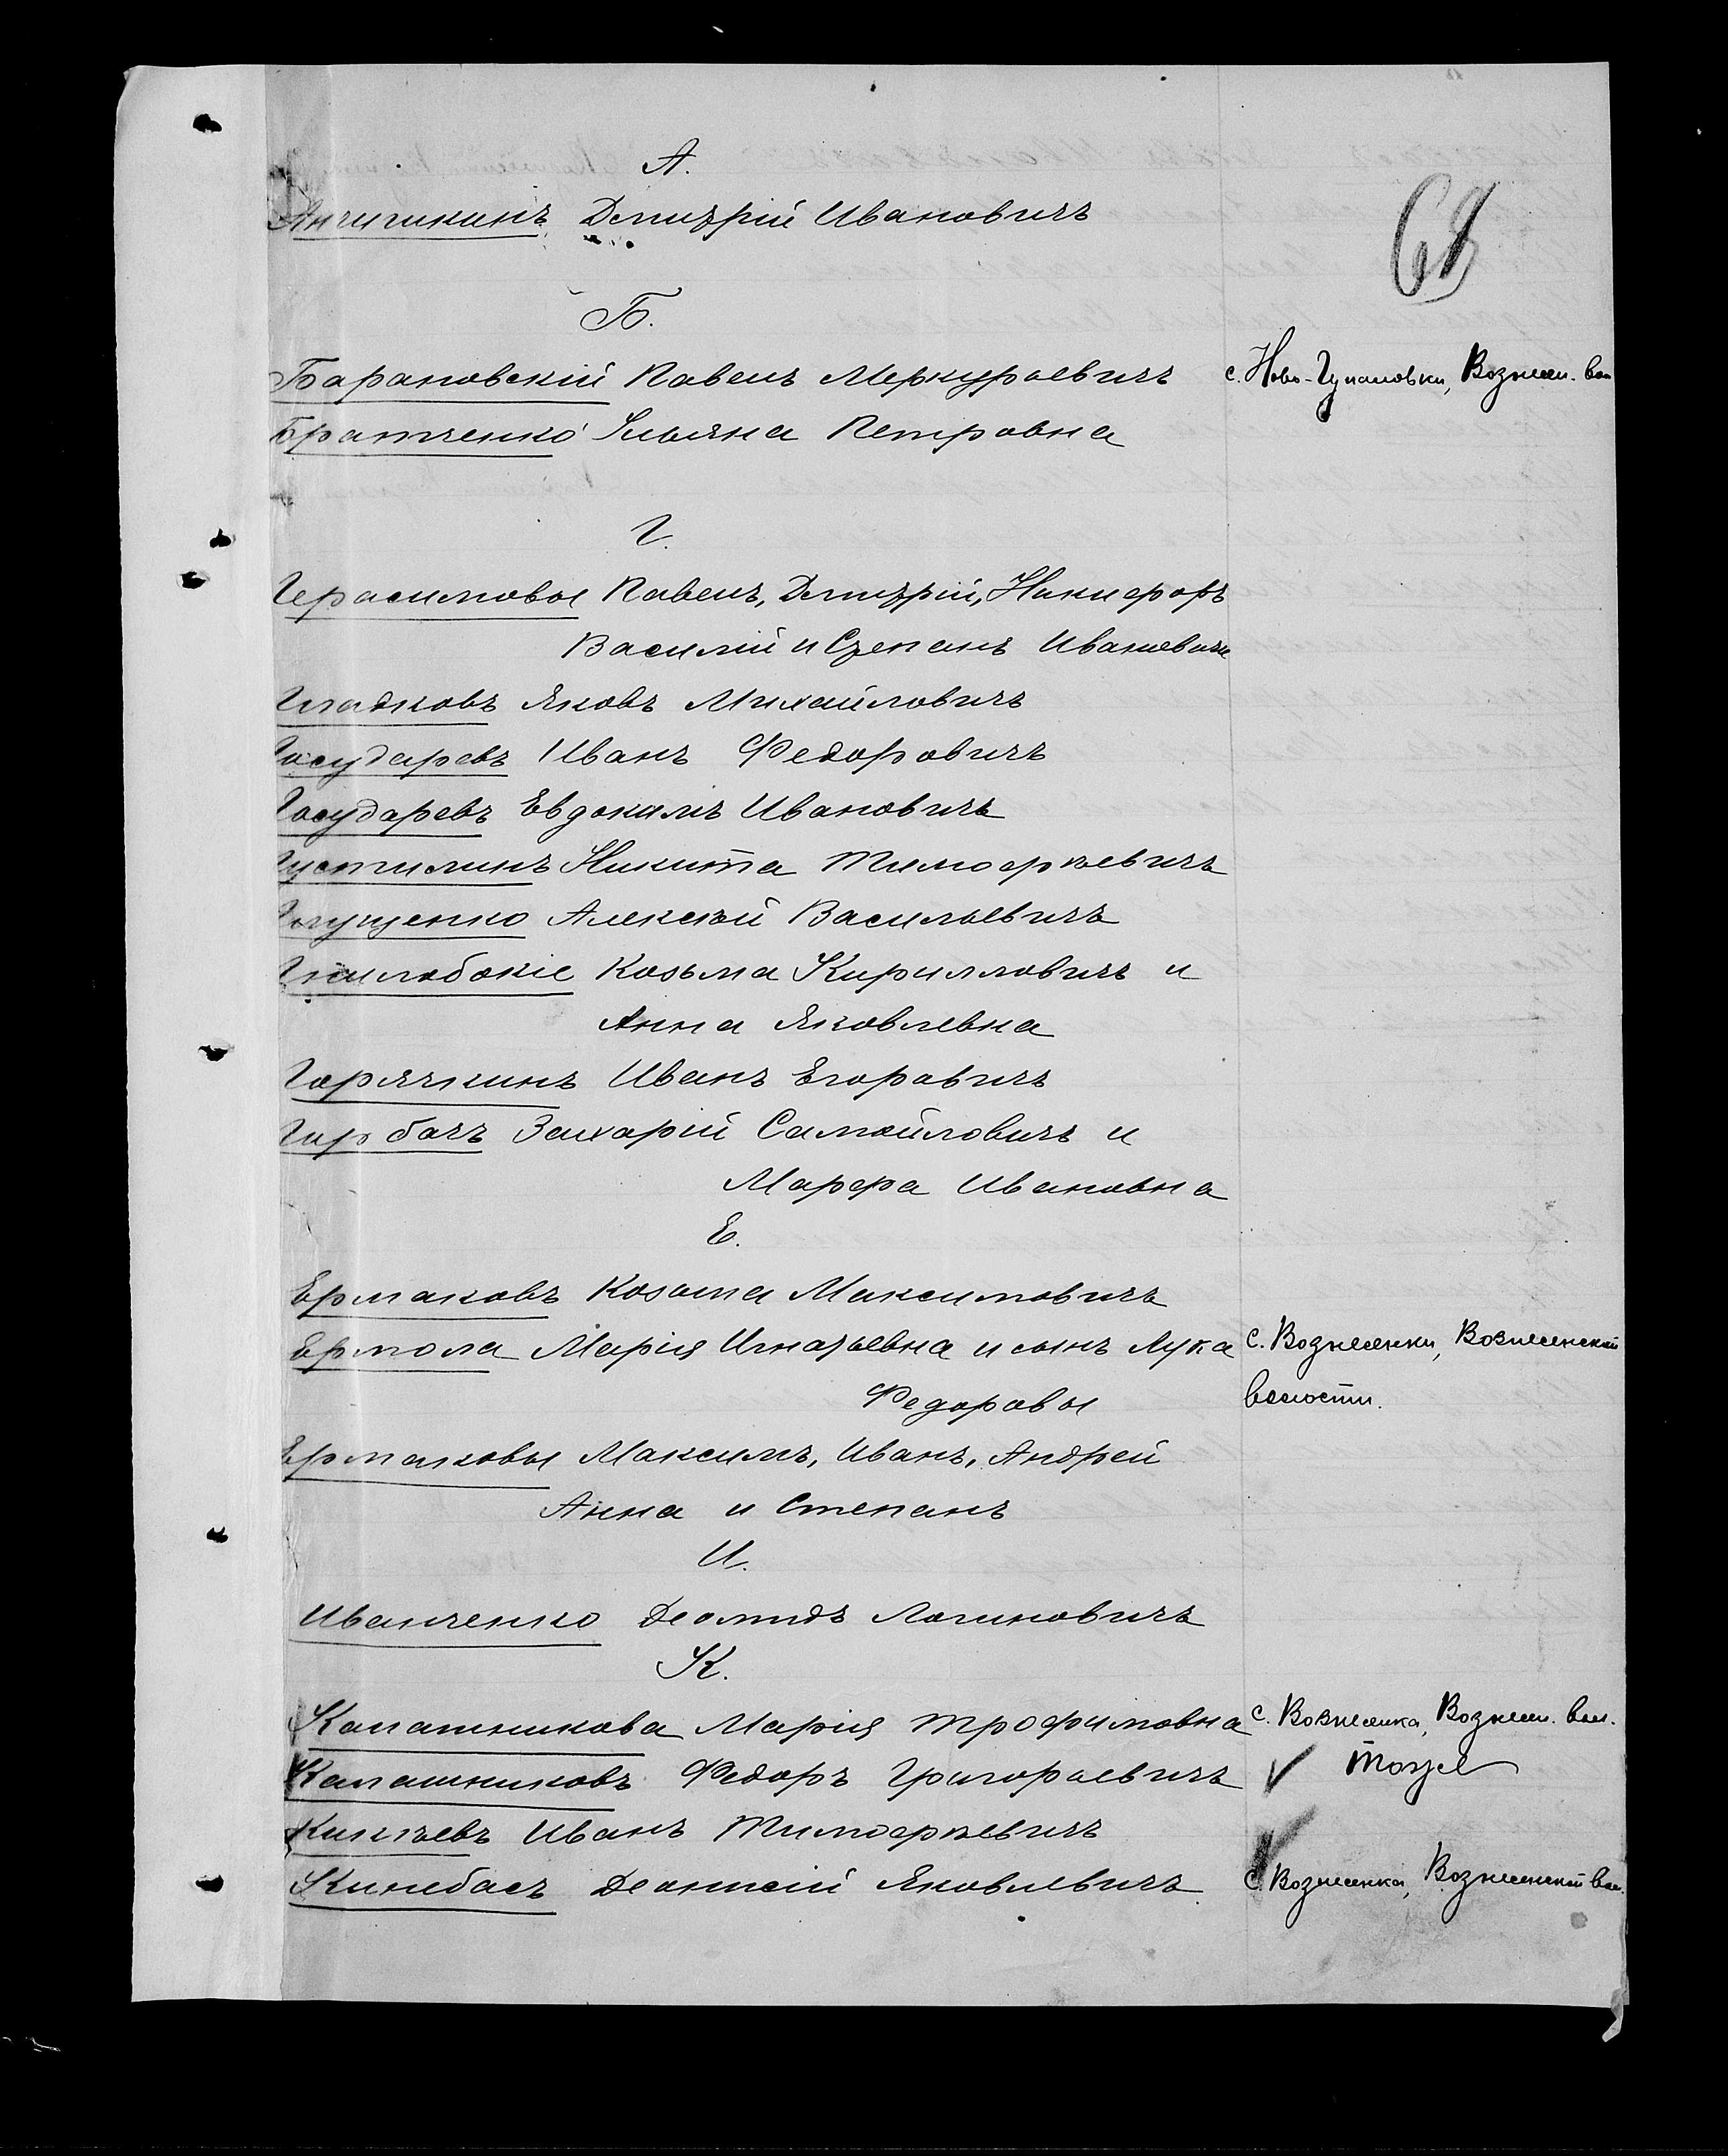 А.
Анчишкинъ Дмитрій Ивановичъ
68
Б.
Барановскій Павелъ Меркурьевичъ с. Ново-Гупаловки, Вознесен. вол
Братченко Ульяна Петровна
Г.
Герасимовы Павелъ, Дмитрій, Никифоръ
Василій и Степанъ Ивановичи
Гладковъ Яковъ Михайловичъ
Государевъ Иванъ Федоровичъ
Государевъ Евдокимъ Ивановичъ
Густилинъ Никита Тимофѣевичъ
Глущенко Алексѣй Васильевичъ
Гнилобокіе Козьма Кирилловичъ и
Анна Яковлевна
Горячкинъ Иванъ Егоровичъ
Горбачъ Захарій Самойловичъ и
Марфа Ивановна
Е.
Ермаковъ Козьма Максимовичъ
Ермола Марія Игнатьевна и сынъ Лука с. Вознесенки, Вознесенской
Федоровы волости.
Ермаковы Максимъ, Иванъ, Андрей
Анна и Степанъ
И.
Иванченко Деомидъ Логиновичъ
К.
Калашникова Марія Трофимовна с. Вознесенка, Вознесен. вол.
Калашниковъ Федоръ Григорьевичъ тоже
Князевъ Иванъ Тимофѣевичъ
Кинебасъ Деонисій Яковлевичъ с. Вознесенка, Вознесенской вол.